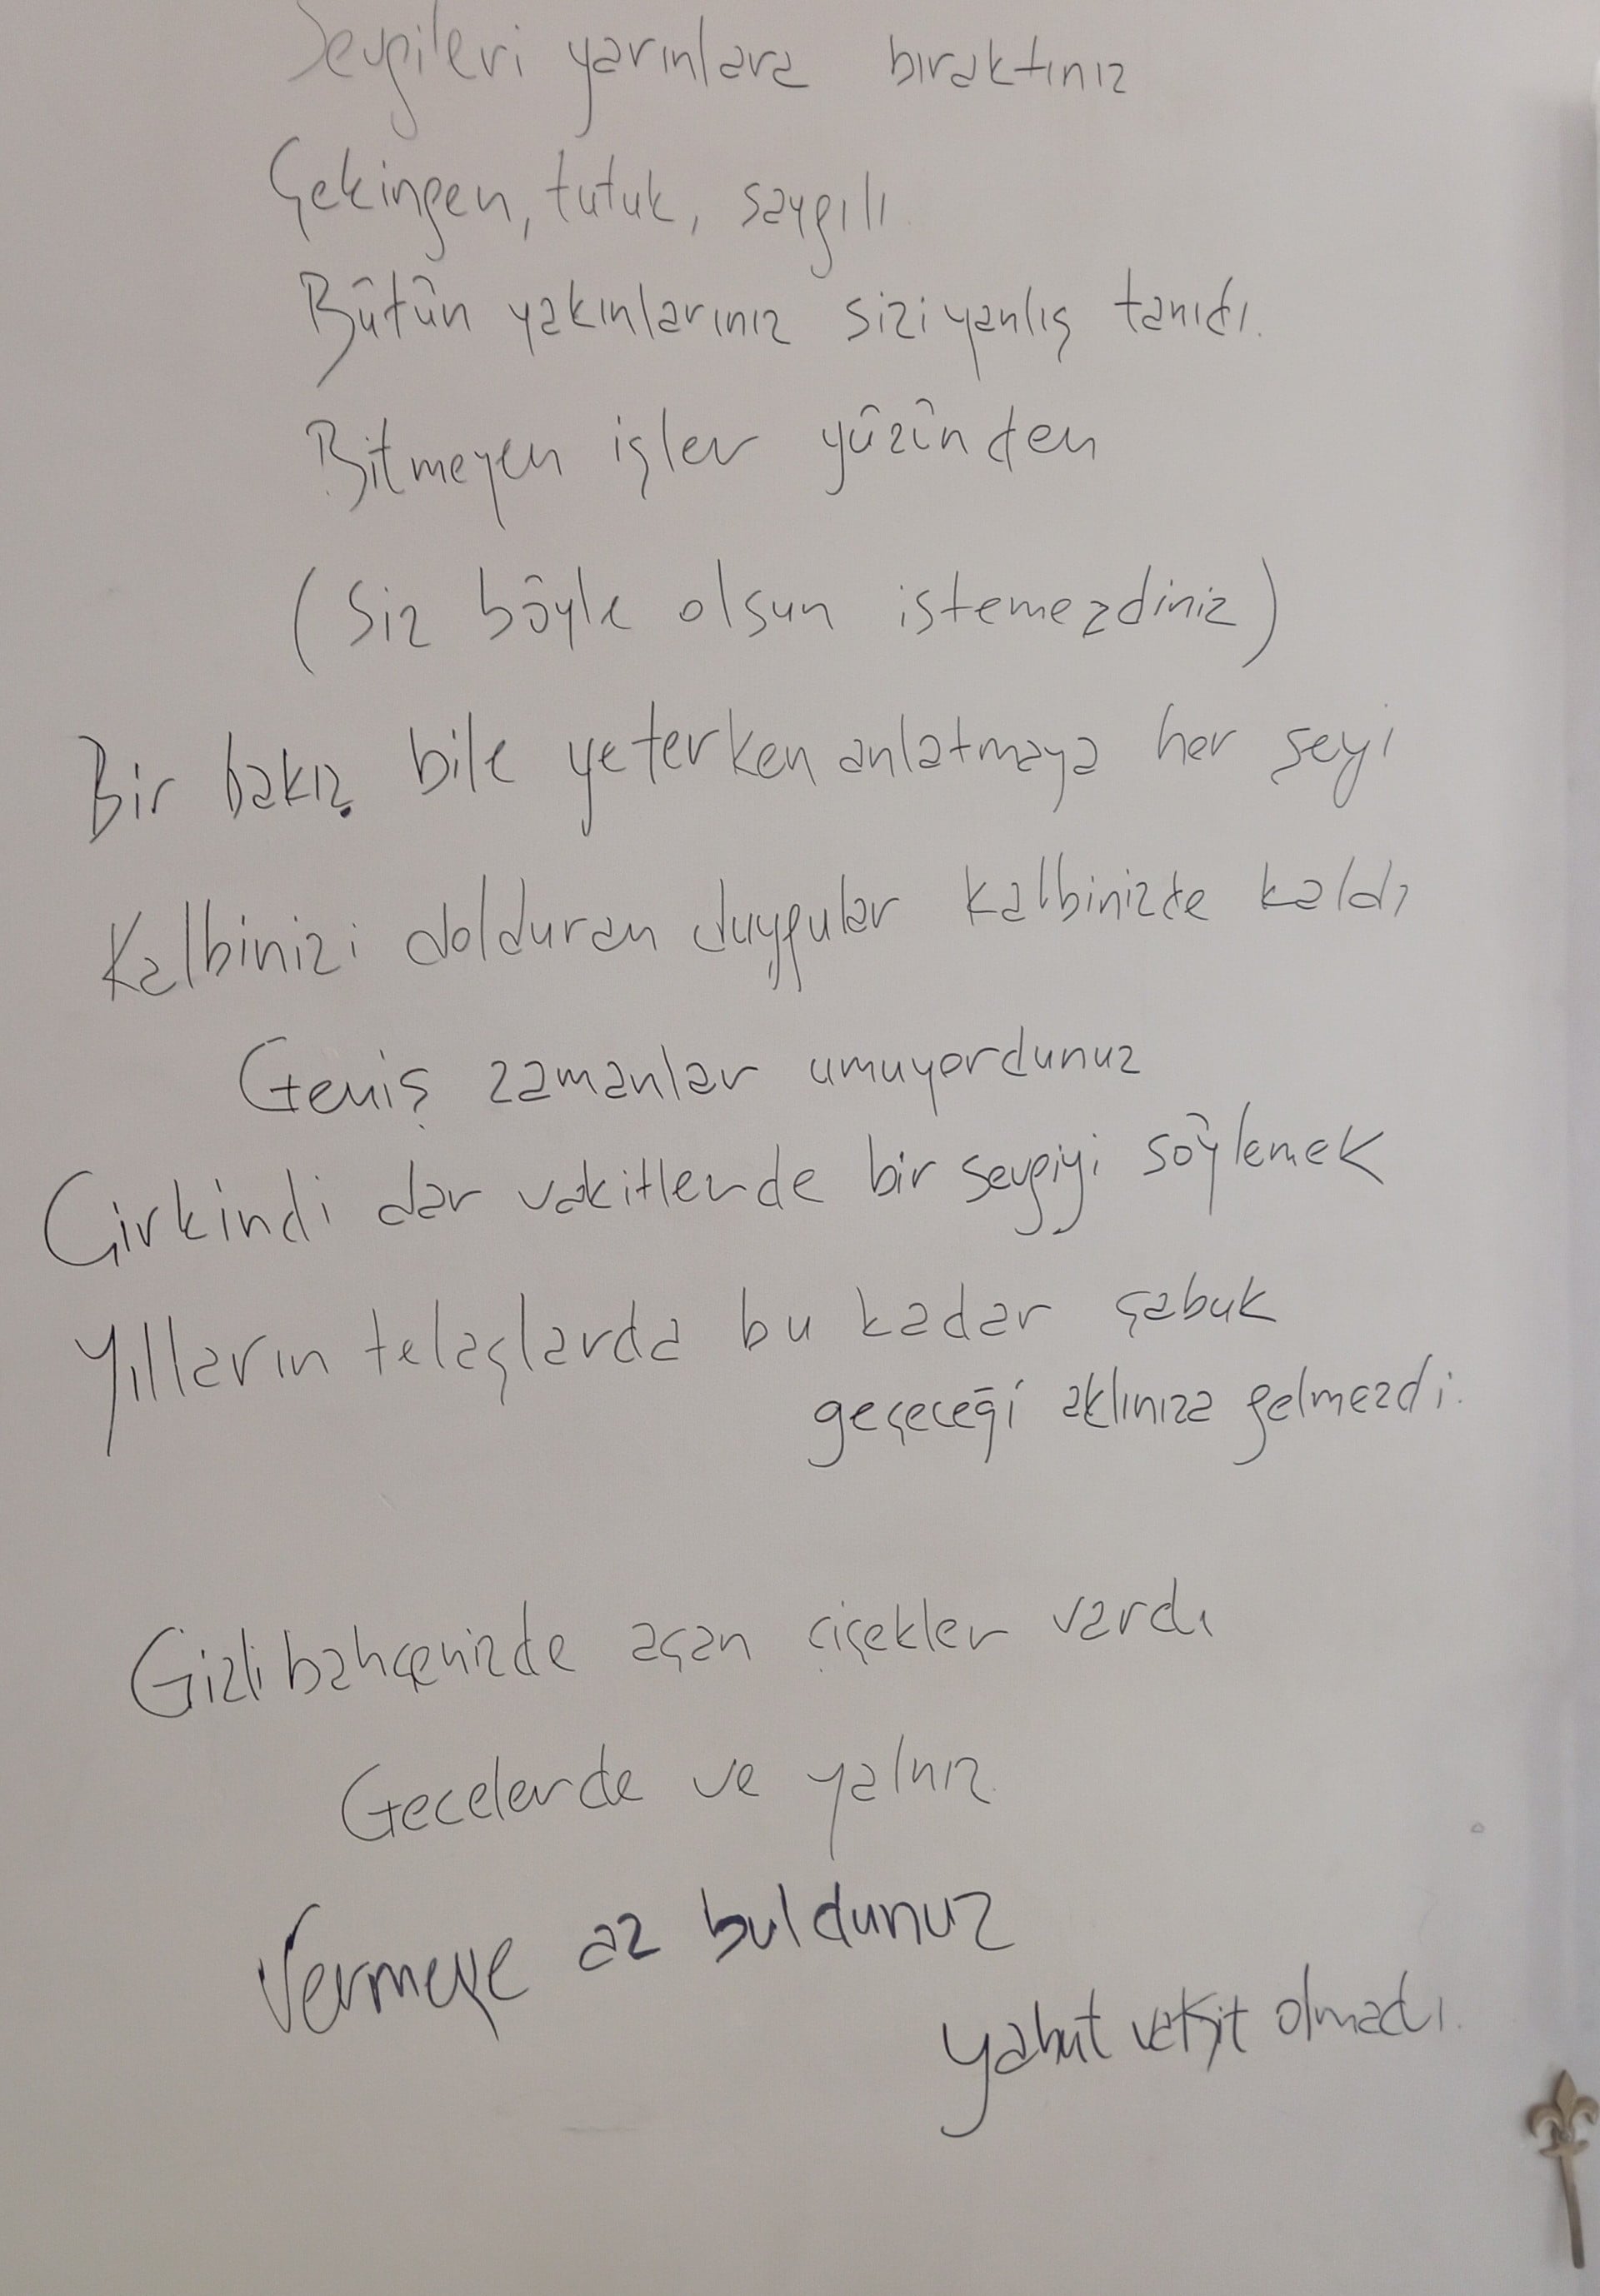 Sevgileri yarınlara bıraktınız
Çekingen, tutuk, saygılı
Bütün yakınlarınız sizi yanlış tanıdı.
Bitmeyen işler yüzünden
(Siz böyle olsun istemezdiniz)
Bir bakış bile yeterken anlatmaya her şeyi
Kalbinizi dolduran duygular kalbinizde kaldı
Geniş zamanlar umuyordunuz
Çirkindi dar vakitlerde bir sevgiyi söylemek
Yılların telaşlarda bu kadar çabuk
geçeceği aklınıza gelmezdi.
Gizli bahçenizde açan çiçekler vardı
Gecelerde ve yalnız.
Vermeye az buldunuz
yahut vakit olmadı.